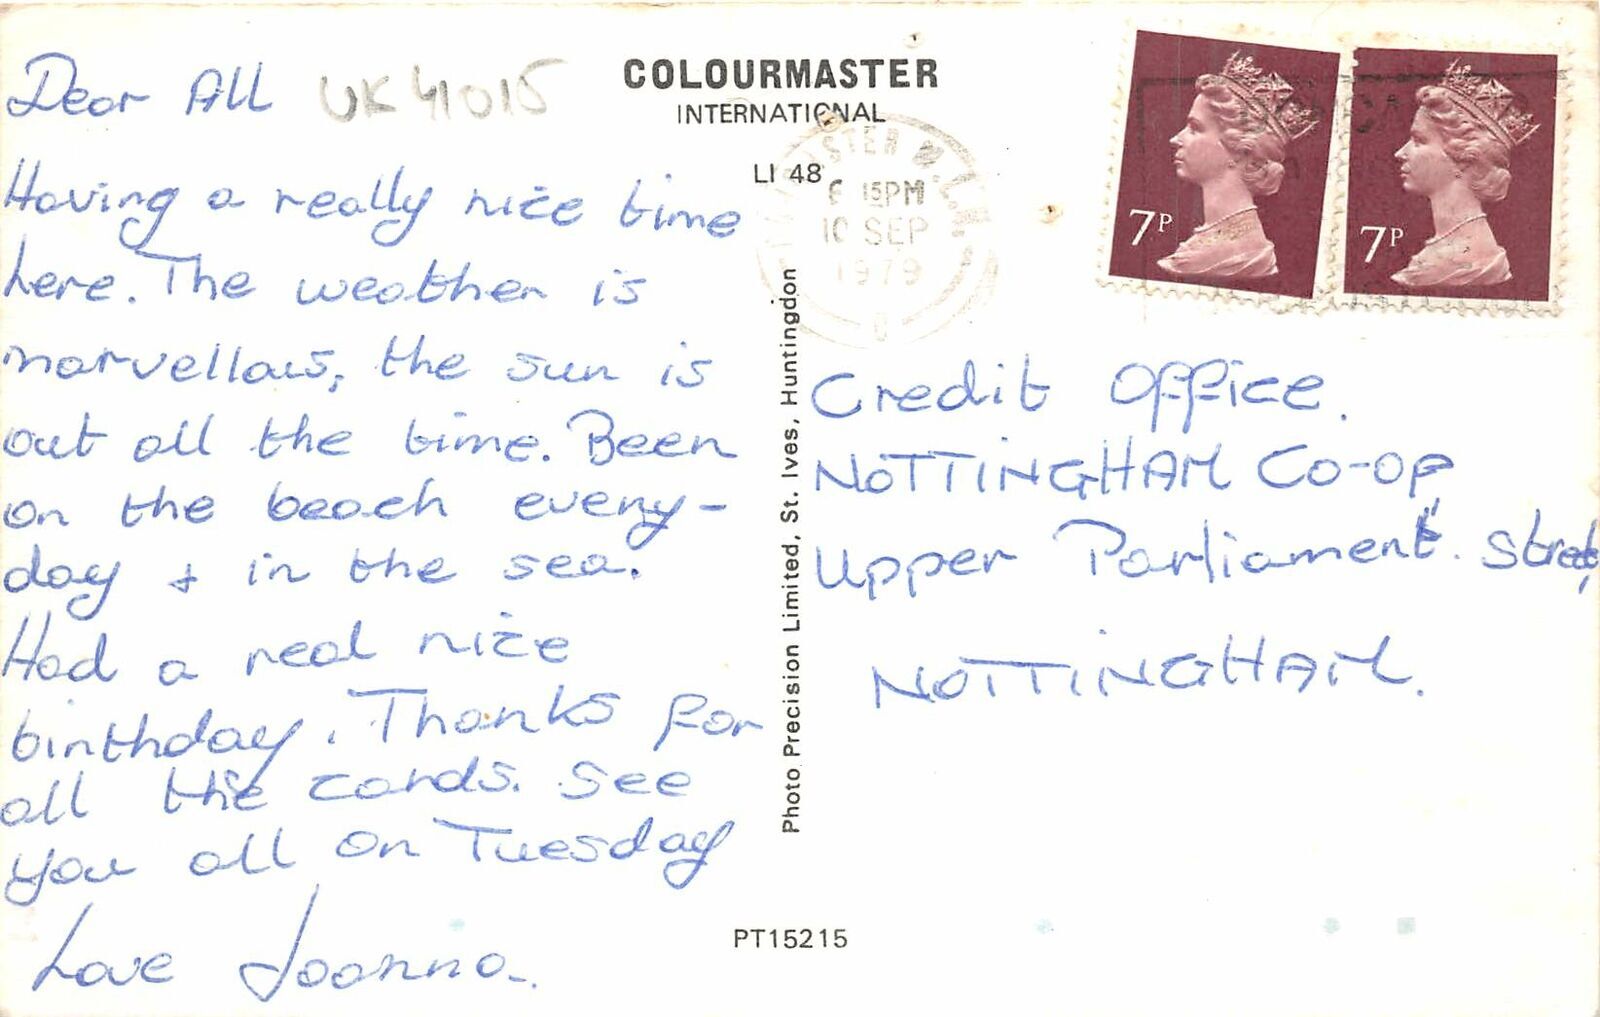 Dear All
UK41015
Having a really nice time
here. The weather is
marvellous, the sun is
out all the time. Been
on the beach every-
day + in the sea.
Had a real nice
birthday. Thanks for
all the cards. See
you all on Tuesday
Love Joanna.
COLOURMASTER
INTERNATIONAL
LI 48
6 15PM
10 SEP
1979
Photo Precision Limited, St. Ives, Huntingdon
PT15215
7P
7P
Credit Office.
NOTTINGHAM CO-OP
Upper Parliament Street,
NOTTINGHAM.